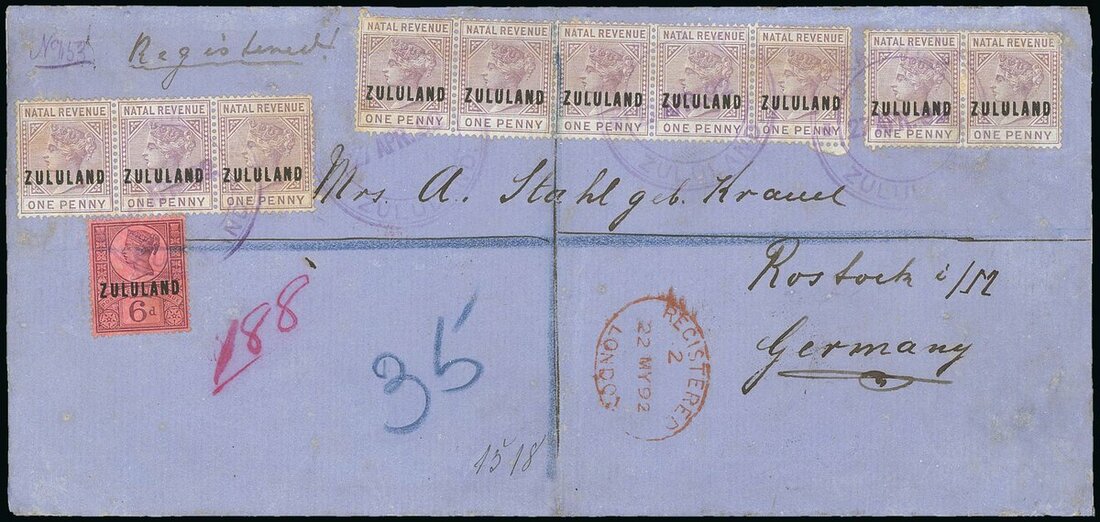 Registered
NATAL REVENUE NATAL REVENUE NATAL REVENUE NATAL REVENUE NATAL REVENUE
ZULULAND ZULULAND ZULULAND ZULULAND ZULULAND
ONE PENNY ONE PENNY ONE PENNY ONE PENNY ONE PENNY
NATAL REVENUE NATAL REVENUE
ZULULAND ZULULAND
ONE PENNY ONE PENNY
NATAL REVENUE NATAL REVENUE NATAL REVENUE
ZULULAND ZULULAND ZULULAND
ONE PENNY ONE PENNY ONE PENNY
Mrs. A. Stahl geb. Krauel
ZULULAND
6d
Rostock i/M
Germany
188
35
REGISTERED
2
22 MY 92
LONDON
1518